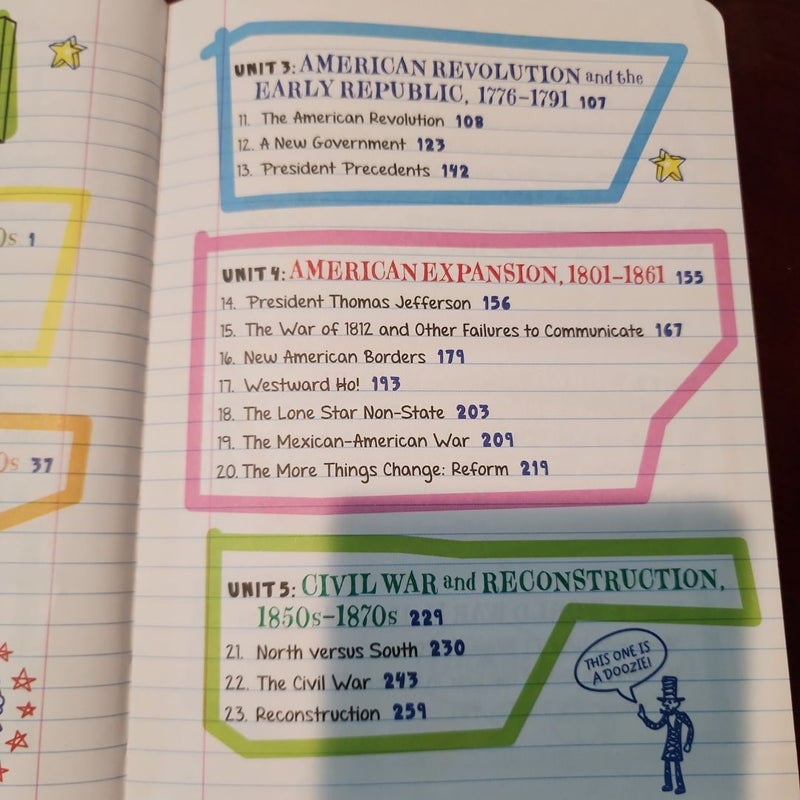 0s 1
0s 37
UNIT 3: AMERICAN REVOLUTION and the
EARLY REPUBLIC, 1776–1791 107
11. The American Revolution 108
12. A New Government 123
13. President Precedents 142
UNIT 4: AMERICAN EXPANSION, 1801–1861 155
14. President Thomas Jefferson 156
15. The War of 1812 and Other Failures to Communicate 167
16. New American Borders 179
17. Westward Ho! 193
18. The Lone Star Non-State 203
19. The Mexican-American War 209
20. The More Things Change: Reform 219
UNIT 5: CIVIL WAR and RECONSTRUCTION,
1850s–1870s 229
21. North versus South 230
22. The Civil War 243
23. Reconstruction 259
THIS ONE IS
A DOOZIE!